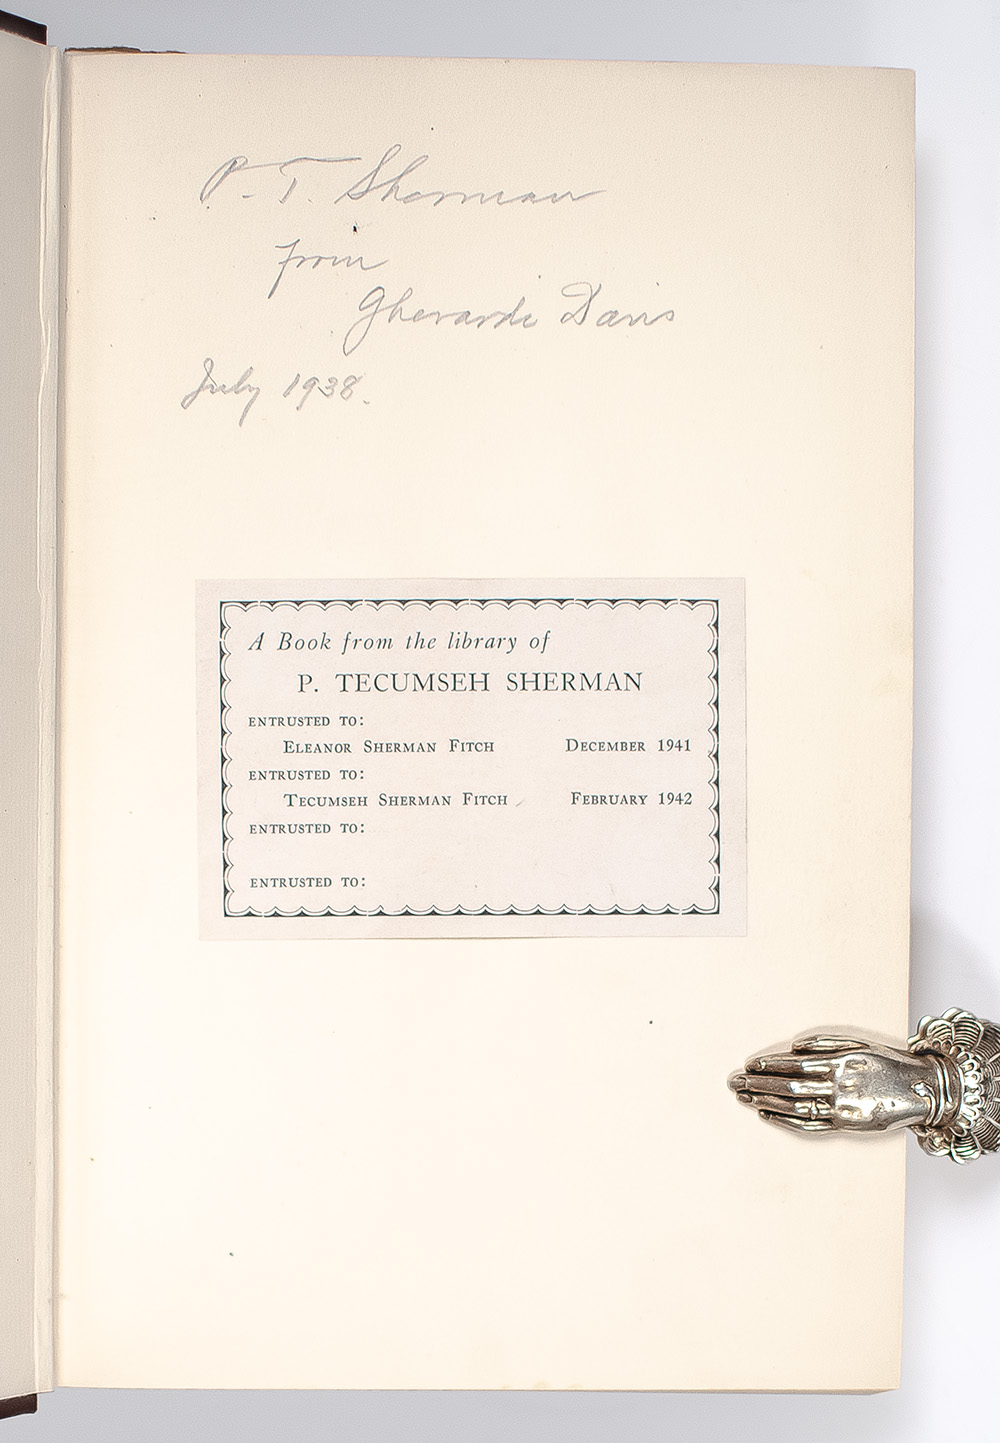 P. T. Sherman
from
Gherardi Davis
July 1938.
A Book from the library of
P. TECUMSEH SHERMAN
ENTRUSTED TO:
ELEANOR SHERMAN FITCH DECEMBER 1941
ENTRUSTED TO:
TECUMSEH SHERMAN FITCH FEBRUARY 1942
ENTRUSTED TO:
ENTRUSTED TO: